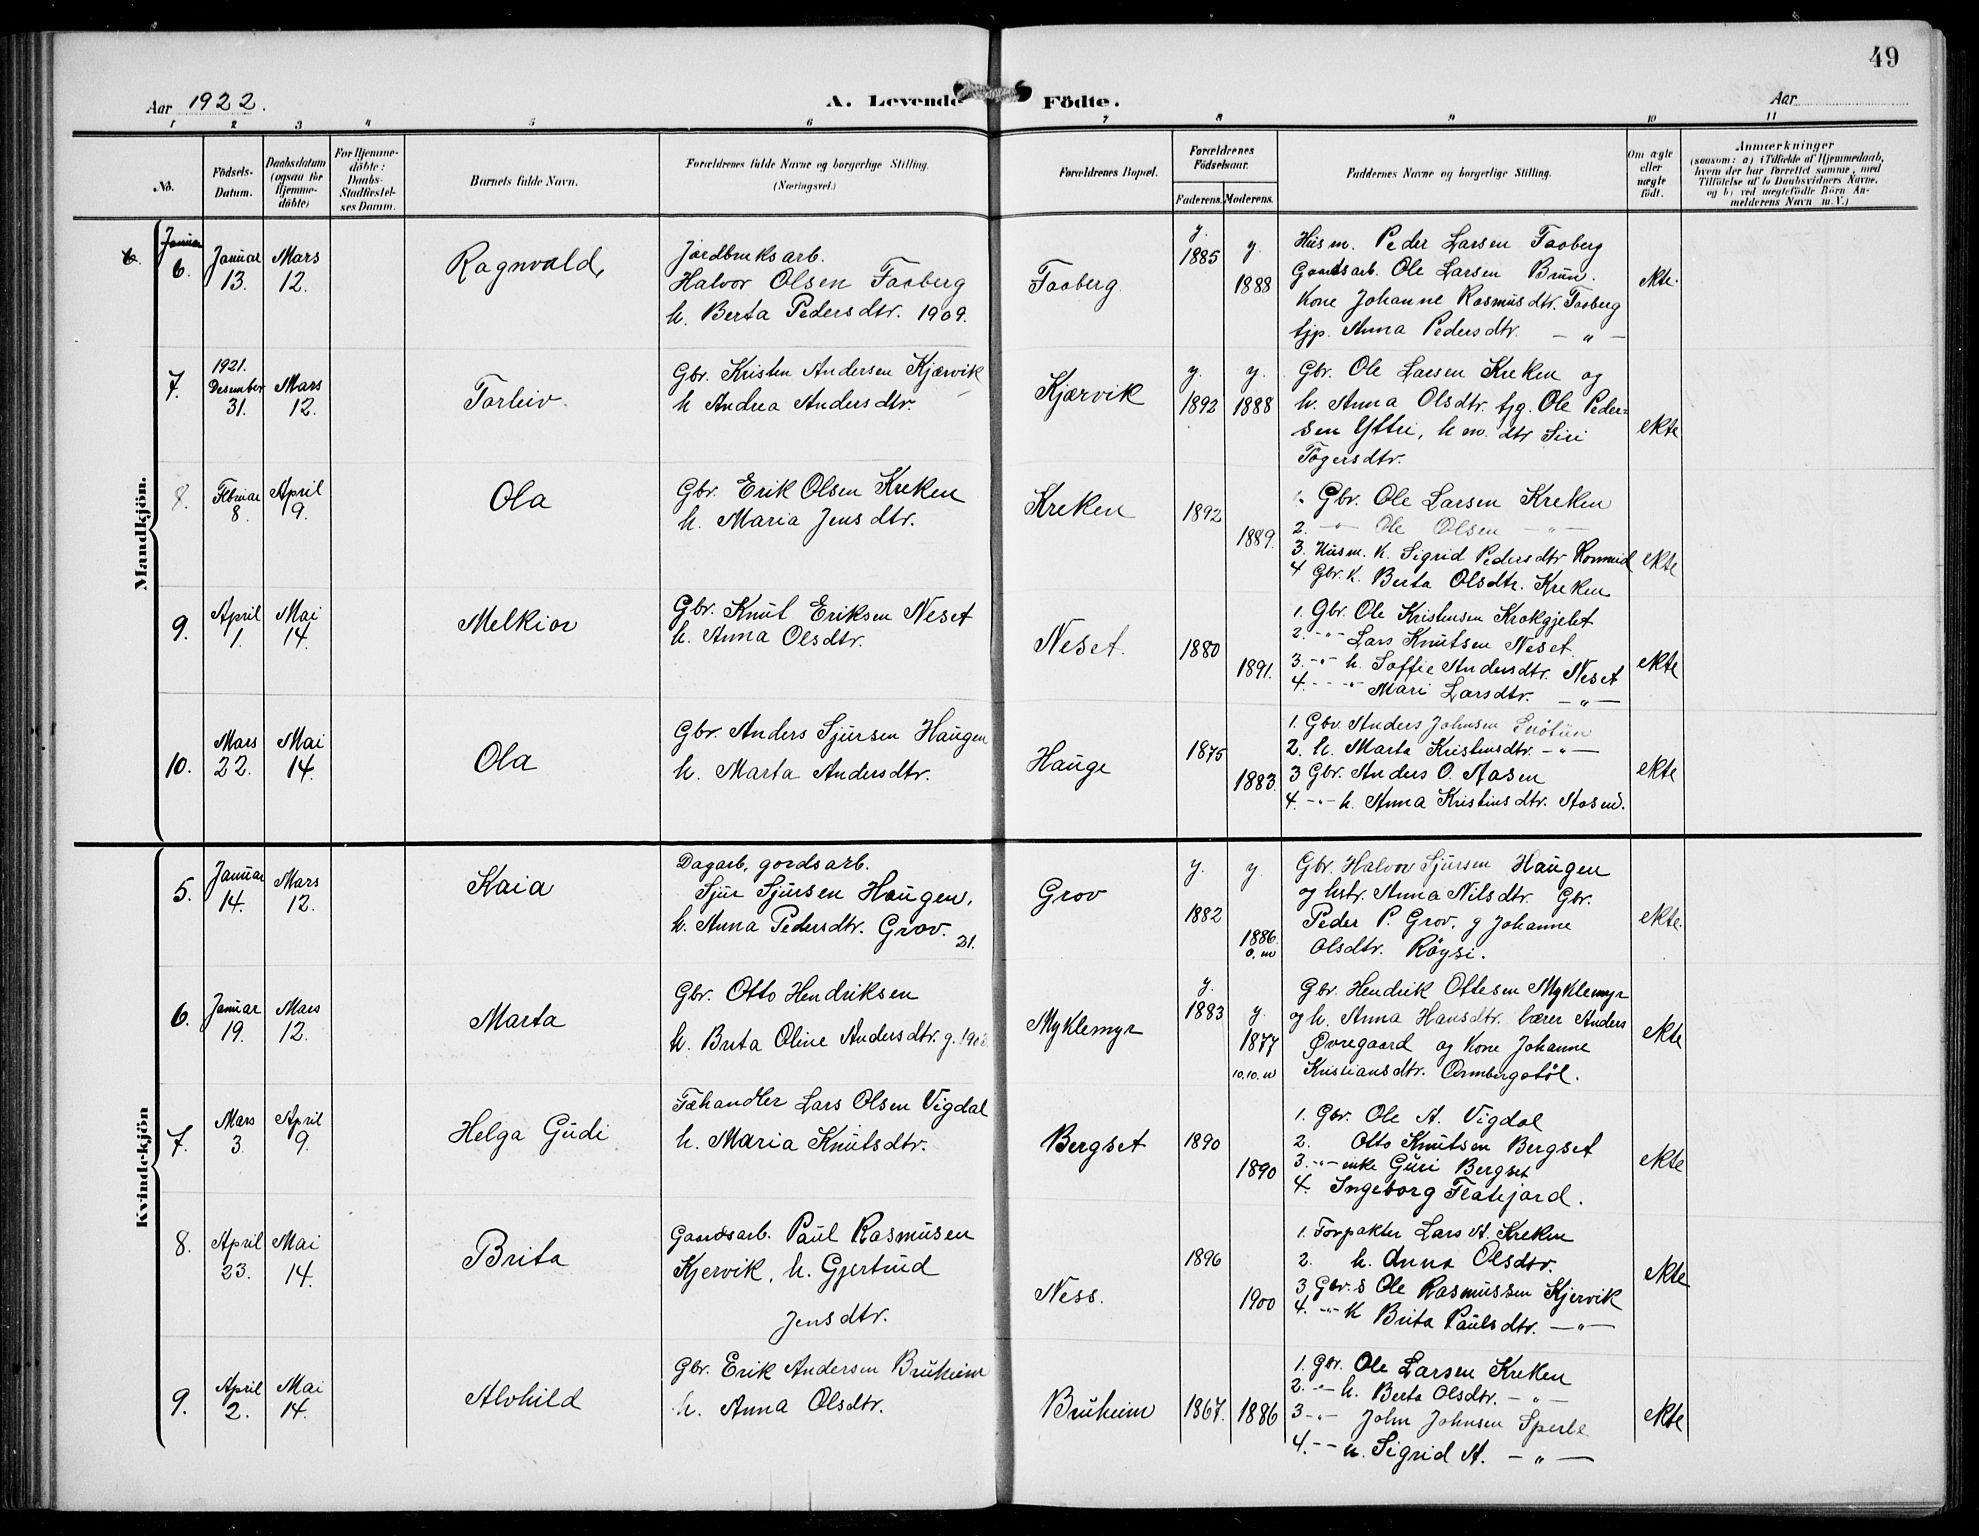 49
Aar 1922.
A. Levende Födte.
Aar
1 2 3 4 5 6 7 8 9 10 11
No.
Födsels-Datum.
Daabsdatum (ogsaa for Hjemme-döbte)
For Hjemme-döbte: Daabs-Stadfæstel-ses Datum.
Barnets fulde Navn.
Forældrenes fulde Navne og borgerlige Stilling. (Næringsvei.)
Forældrenes Bopæl.
Forældrenes Födselsaar.
Faderens. Moderens.
Faddernes Navne og borgerlige Stilling.
Om ægte eller uægte födt.
Anmærkninger
(saasom: a) i Tilfælde af Hjemmedaab,
hvem der har forrettet samme, med
Tilföielse af to Daabsvidners Navne,
og b) ved uægtefödte Börn An-
melderens Navn m. V.)
Mandkjön.
6. Januar 13. Mars 12.
Ragnvald,
Jordbruksarb.
Halvor Olsen Faaberg
h. Berta Pedersdtr. 1909.
Faaberg
y. 1885 y. 1888
Husm. Peder Larsen Faaberg
Gaardsarb. Ole Larsen Brun.
Kone Johanne Rasmusdtr. Faaberg
tjp. Anna Pedersdtr. — " —
ekte.
7. 1921. Desember 31. Mars 12.
Torleiv.
Gbr. Kristen Andersen Kjærvik
h Andrea Andersdtr.
Kjærvik
y. 1892 y. 1888
Gbr. Ole Larsen Kreken og
h. Anna Olsdtr. tjg. Ole Peder=
sen Yttri, h m. dtr Siri
Tøgersdtr.
ekte
8. Februar 8. April 9.
Ola
Gbr. Erik Olsen Kreken
h. Maria Jensdtr.
Kreken
1892 1889.
1. Gbr. Ole Larsen Kreken
2. — " — Ole Olsen — " —
3. Husm. K. Sigrid Pedersdtr
4 Gbr. K. Berta Olsdtr. Kreken
ekte
9. April 1. Mai 14.
Melkior
Gbr. Knut Eriksen Neset
h. Anna Olsdtr.
Neset.
1880 1891.
1. Gbr. Ole Kristensen Krokgjelet
2. - " - Lars Knutsen Neset
3. - " - h. Soffie Andersdtr. Neset
4. - - " Mari Larsdtr. — " —
ekte
10. Mars 22. Mai 14.
Ola
Gbr. Anders Sjursen Haugen
h. Marta Andersdtr.
Hauge
1875 1883.
1. Gbr. Anders Johnsen Snøtun
2. h. Marta Kristensdtr. — " —
3 Gbr. Anders O. Aasen
4. - " - h. Anna Kristensdtr. Aasen.
ekte
Kvindekjön
5. Januar 14. Mars 12.
Kaia
Dagarb, gordsarb.
Sjur Sjursen Haugen,
h. Anna Pedersdtr. Grov.
21.
Grov
y. 1882 y. 1886.
Gbr. Halvor Sjursen Haugen
og hstr. Anna Nilsdtr. Gbr.
Peder P. Grov, g Johanne
Olsdtr. Röysi.
ekte.
6. Januar 19. Mars 12.
Marta
Gbr. Otto Hendriksen
h. Brita Oline Andersdtr. g.
Myklemyr
y. 1883 y. 1877
Gbr. Hendrik Ottesen Myklemyr
og h. Anna Hansdtr. lærer Anders
Øvregaard og Kone Johanne
Kristiansdtr. Ormbergstøl.
ekte
7. Mars 3. April 9.
Helga Gudi
Fæhandler Lars Olsen Vigdal
h. Maria Knutsdtr.
Bergset
1890 1890
1. Gbr. Ole A. Vigdal
2. Otto Knutsen Bergset
3. - " - enke Guri Bergset
4. Ingeborg Flatejord.
ekte
8. April 23. Mai 14.
Brita
Gaardsarb. Paul Rasmusen
Kjervik, h. Gjertrud
Jensdtr.
Ness.
1896 1900
1. Forpakter Lars A. Kreken
2. h. Anna Olsdtr.
3 Gbr. s Ole Rasmussen Kjervik
4. - " - K Brita Paulsdtr. — " —
ekte
9. April 2. Mai 14.
Alvhild
Gbr. Erik Andersen Bruheim
h. Anna Olsdtr.
Bruheim
1867. 1886
1. Gbr. Ole Larsen Kreken
2. - " - h. Berta Olsdtr. - " -
3 - " - John Johnsen Sperle
4. - - h. Sigrid A. — " —
ekte